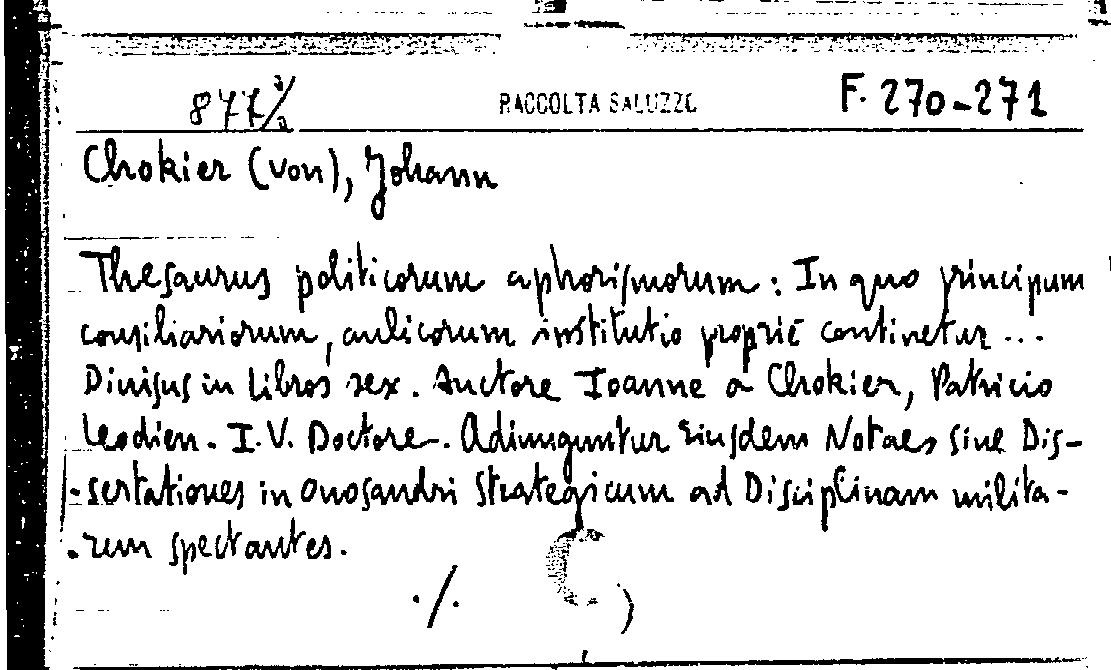 877 3/2 RACCOLTA SALUZZO F. 270-271
Chokier (von), Johann
Thesaurus politicorum aphorismorum: In quo principum
consiliariorum, aulicorum institutio propriè continetur...
Divisus in libros sex. Auctore Ioanne a Chokier, Patricio
Leodien. I.V. Doctore. Adiunguntur Eiusdem Notae, sive Dis-
sertationes in Onosandri Strategicum ad Disciplinam milita-
rem spectantes.
./.